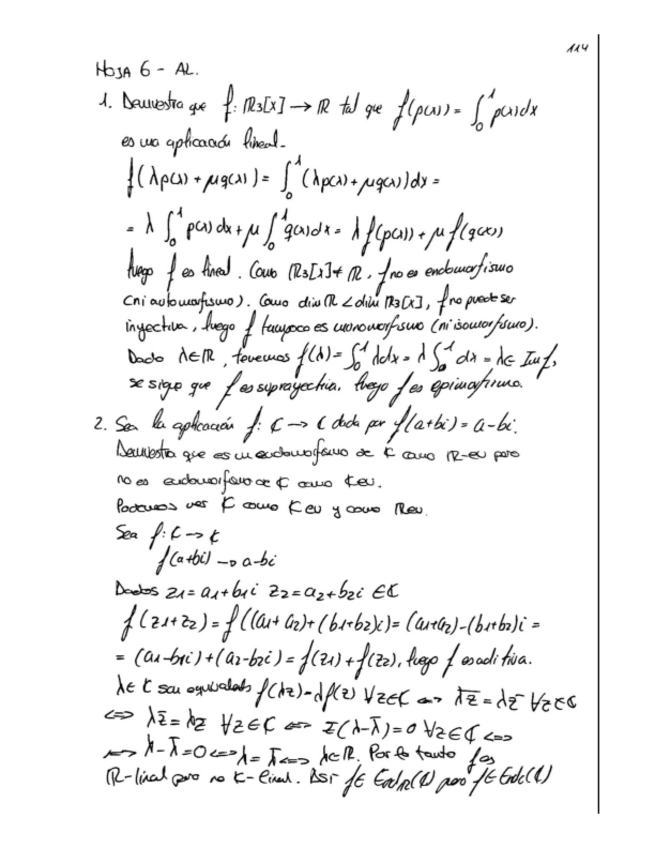 114
HOJA 6 - AL.
1. Demuestra que f: ℝ3[x] → ℝ tal que f(p(x)) = ∫₀¹ p(x)dx
es una aplicación lineal.
f(λp(x) + μq(x)) = ∫₀¹ (λp(x) + μq(x))dx =
= λ ∫₀¹ p(x)dx + μ ∫₀¹ q(x)dx = λ f(p(x)) + μ f(q(x))
luego f es lineal. Como ℝ3[x] ≠ ℝ, f no es endomorfismo
(ni automorfismo). Como dim ℝ < dim ℝ3[x], f no puede ser
inyectiva, luego f tampoco es monomorfismo (ni isomorfismo).
Dado λ∈ℝ, tenemos f(λ) = ∫₀¹ λdx = λ ∫₀¹ dx = λ ∈ Im f,
se sigue que f es suprayectiva. luego f es epimorfismo.
2. Sea la aplicación f: ℂ → ℂ dada por f(a+bi) = a-bi.
Demuestra que es un endomorfismo de ℂ como ℝ-ev pero
no es endomorfismo de ℂ como ℂev.
Podemos ver ℂ como ℂev y como ℝev.
Sea f: ℂ → ℂ
f(a+bi) → a-bi
Dados z1 = a1+b1i z2 = a2+b2i ∈ ℂ
f(z1+z2) = f((a1+a2)+(b1+b2)i) = (a1+a2)-(b1+b2)i =
= (a1-b1i)+(a2-b2i) = f(z1)+f(z2), luego f es aditiva.
λ∈ℂ son equivalentes f(λz) = λf(z) ∀z∈ℂ ⟺ λ̅z̅ = λz̅ ∀z∈ℂ
⟺ λz̅ = λ̅z̅ ∀z∈ℂ ⟺ z̅(λ-λ̅) = 0 ∀z∈ℂ ⟺
⟺ λ-λ̅ = 0 ⟺ λ = λ̅ ⟺ λ∈ℝ. Por lo tanto f es
ℝ-lineal pero no ℂ-lineal. Así f∈ Endℝ(ℂ) pero f∈ Endℂ(ℂ)